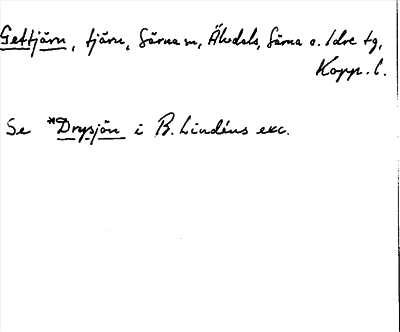 Gettjärn, tjärn, Särna sn, Älvdals, Särna o. Idre tg,
Kopp. l.
Se *Drysjön i B. Lindéns exc.